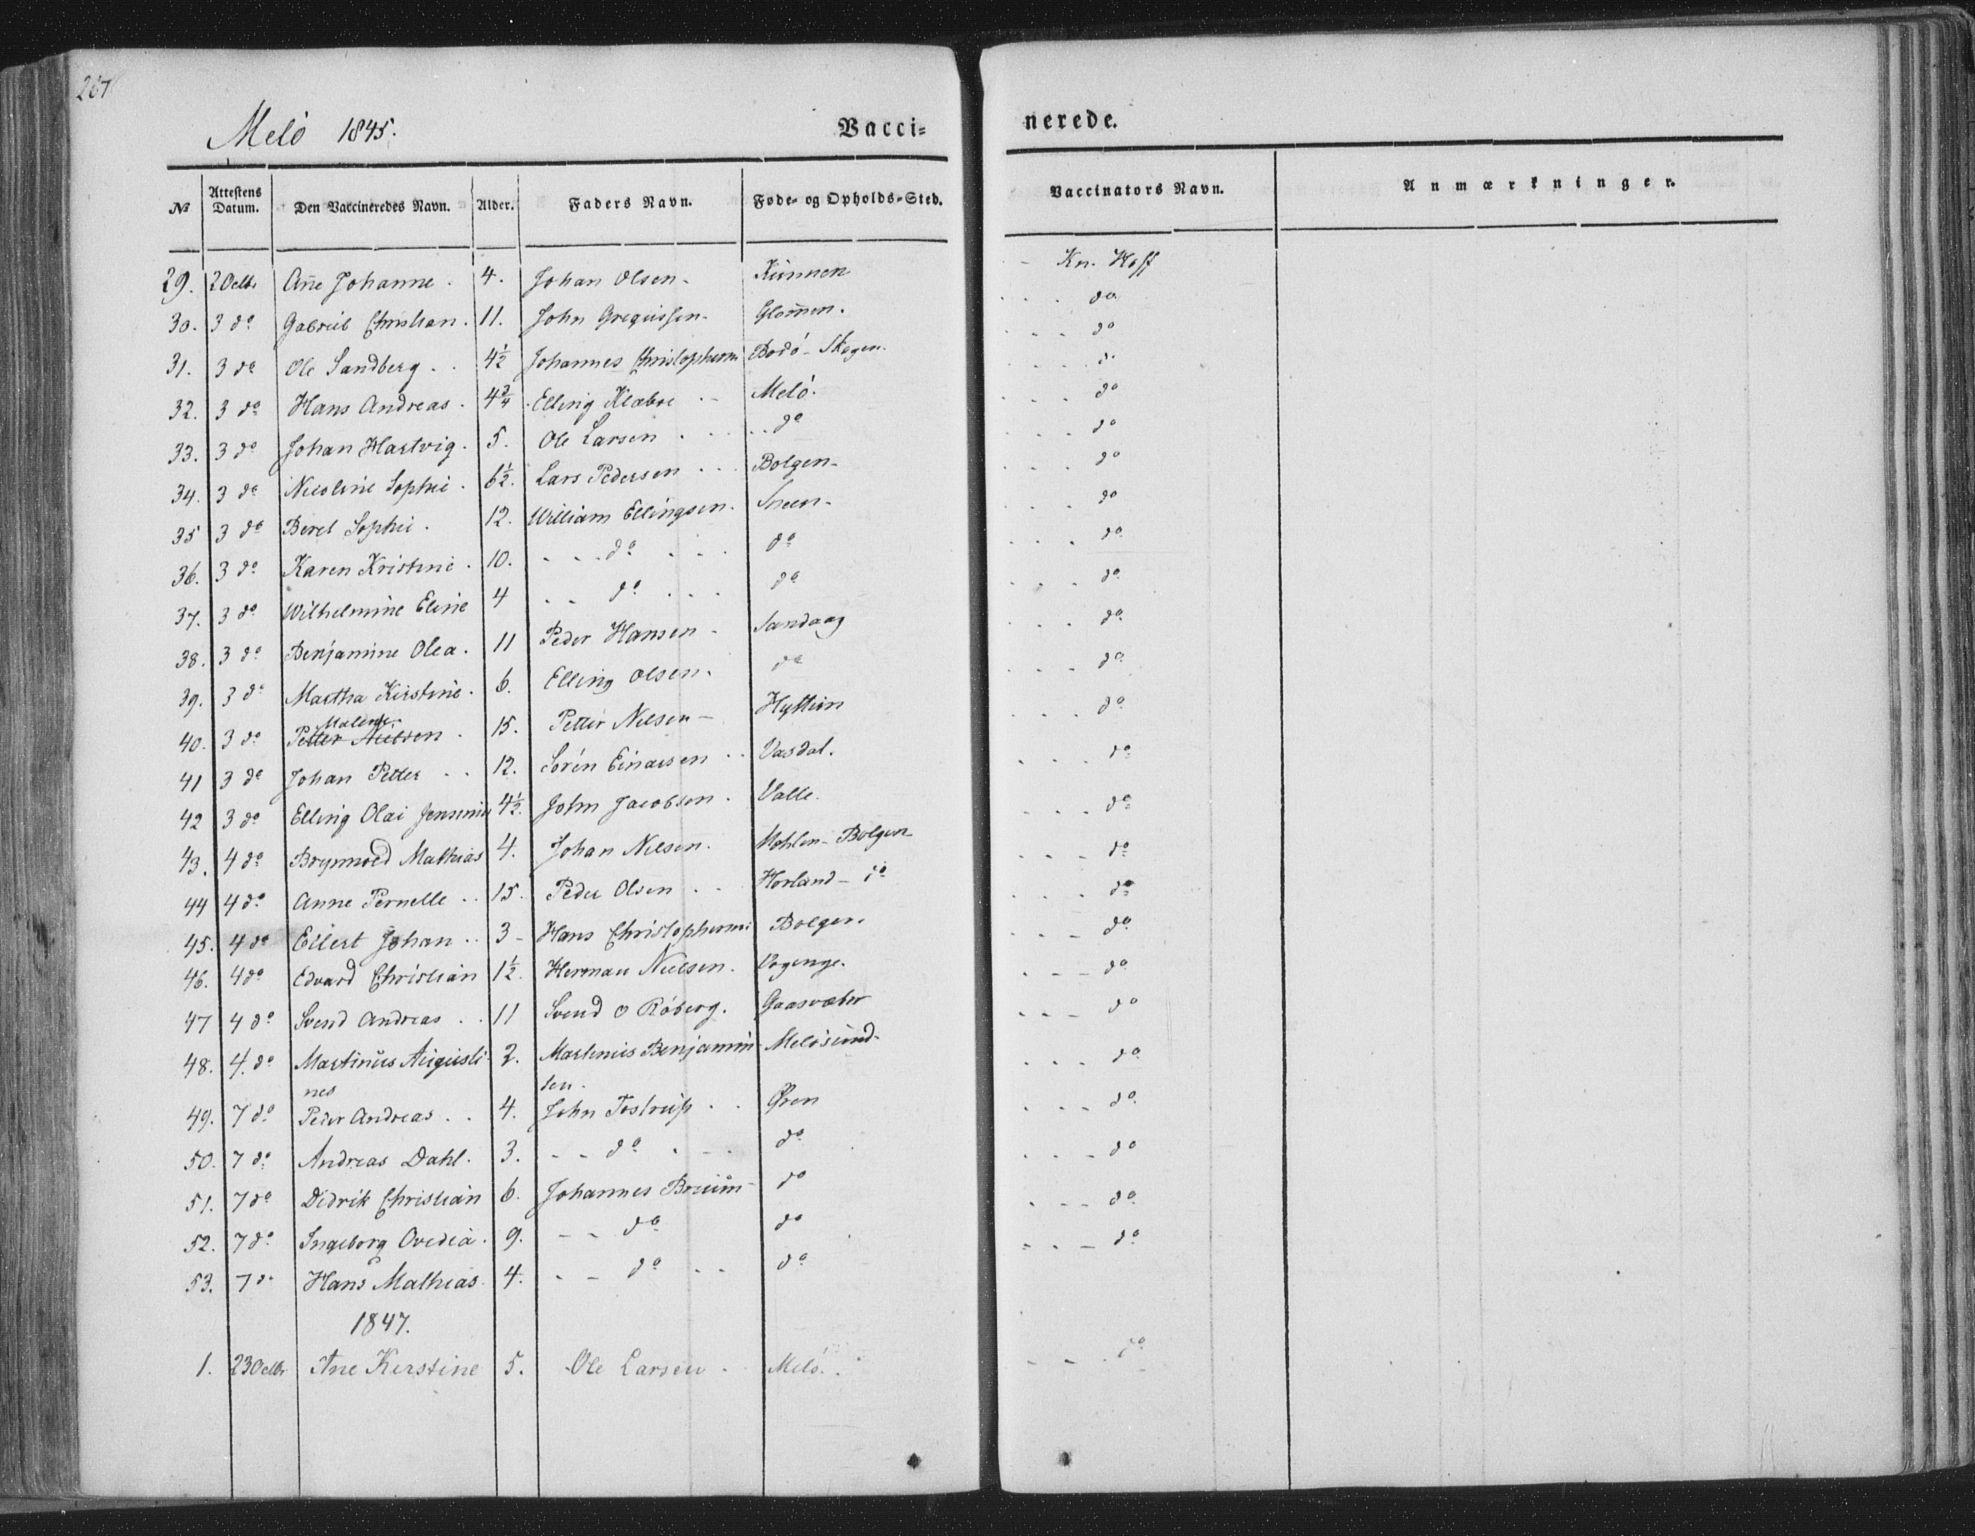 267
Melö 1845.
Vacci= nerede.
№ Attestens Datum. Den Vaccineredes Navn. Alder. Faders Navn. Føde- og Opholds-Sted. Vaccinators Navn. Anmærkninger.
29. 2 Octbr Añe Johanne. 4. Johan Olsen - Kunnen - Kn. Hoff
30. 3 do Gabriel Christian. 11. John Gregussen - Glom̄en. do
31. 3 do Ole Sandberg. 4½ Johannes Christophersen Bodö - Skogen do
32. 3 do Hans Andreas. 4¾ Elling Klæboe Melö. do
33. 3 do Johan Hartvig. 5. Ole Larsen do do
34. 3 do Nicoline Sophie. 6½. Lars Pedersen Bolgen - do
35 3 do Beret Sophie. 12. William Ellingsen. Sneen - do
36. 3 do Karen Kristine. 10. do do do
37. 3 do Wilhelmine Eline 4 do do do
38. 3 do Benjamine Olea. 11 Peder Hansen - Sandaag do
39. 3 do Martha Kirstine. 6. Elling Olsen. do do
40. 3 do Petter Nielsen Malene. 15. Petter Nilsen - Hytten do
41 3 do Johan Petter 12. Sören Einarsen Vasdal. do
42 3 do Elling Olai Jensenius 4½. John Jacobsen. Valle. do
43. 4 do Brynnoed Mathias 4. Johan Nilsen. Mohlen - Bolgen do
44 4 do Anne Pernelle 15. Peder Olsen Horland - do do
45. 4 do Eilert Johan 3 - Hans Christophersen Bolgen. do
46. 4 do Edvard Christian 1½. Herman Nielsen. Vogenge. do
47 4 do Svend Andreas 11 Svend O Röberg. Gaasvær do
48. 4. do Martinus Augusti 2. Martinus Benjamin Melösund - do
nes sen.
49. 7 do Peder Andreas 4. John Tostrup Øren do
50. 7 do Andreas Dahl. 3. do do do
51. 7 do Didrik Christian 6. Johannes Bruun - do do
52. 7 do Ingeborg Ovedia. 9. do do do
53. 7 do Hans Mathias 4. do do
1847.
1. 23 Octbr Ane Kirstine 5. Ole Larsen Melö. do